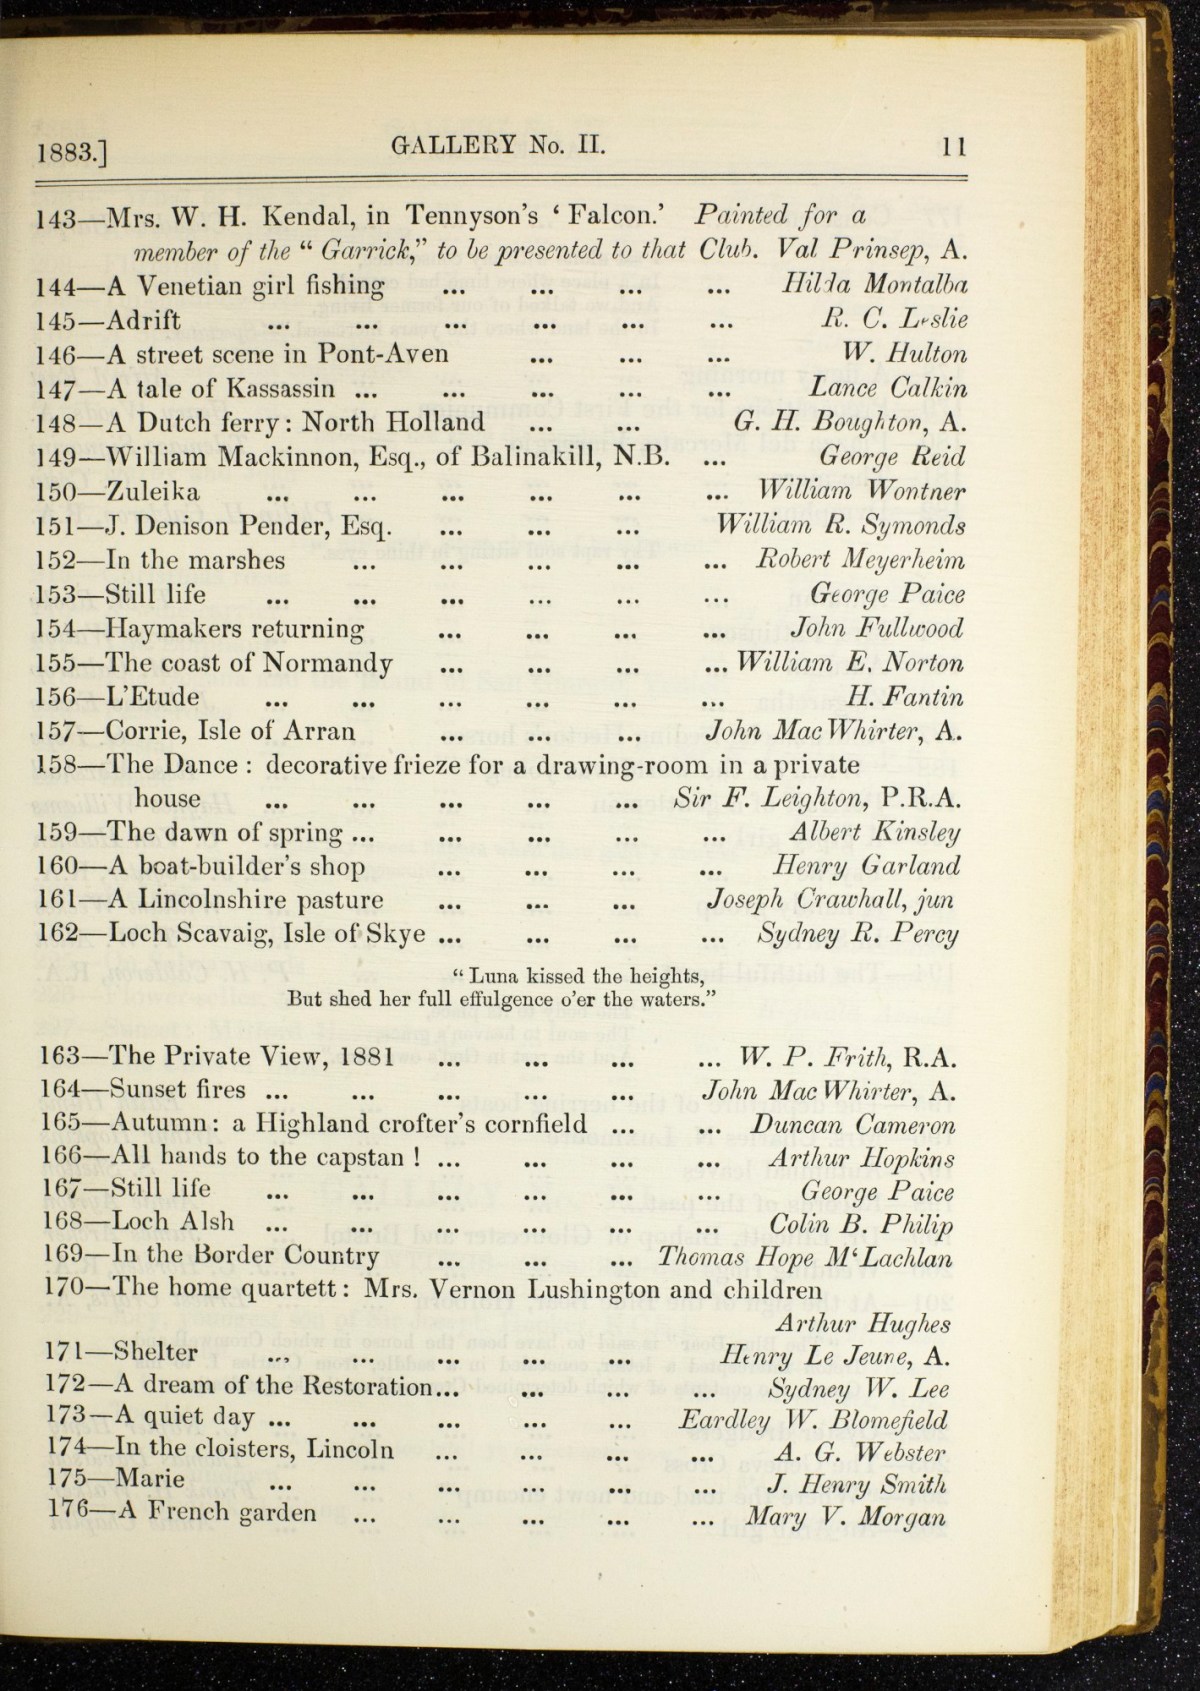 1883.] GALLERY No. II. 11
143—Mrs. W. H. Kendal, in Tennyson's ‘ Falcon.’ Painted for a
member of the “ Garrick,” to be presented to that Club. Val Prinsep, A.
144—A Venetian girl fishing ... ... ... ... Hilda Montalba
145—Adrift ... ... ... ... ... ... R. C. Leslie
146—A street scene in Pont-Aven ... ... ... W. Hulton
147—A tale of Kassassin ... ... ... ... ... Lance Calkin
148—A Dutch ferry: North Holland ... ... G. H. Boughton, A.
149—William Mackinnon, Esq., of Balinakill, N.B. ... George Reid
150—Zuleika ... ... ... ... ... ... William Wontner
151—J. Denison Pender, Esq. ... ... ... William R. Symonds
152—In the marshes ... ... ... ... ... Robert Meyerheim
153—Still life ... ... ... ... ... ... George Paice
154—Haymakers returning ... ... ... ... John Fullwood
155—The coast of Normandy ... ... ... ... William E. Norton
156—L'Etude ... ... ... ... ... ... H. Fantin
157—Corrie, Isle of Arran ... ... ... John MacWhirter, A.
158—The Dance : decorative frieze for a drawing-room in a private
house ... ... ... ... ... Sir F. Leighton, P.R.A.
159—The dawn of spring ... ... ... ... ... Albert Kinsley
160—A boat-builder's shop ... ... ... ... Henry Garland
161—A Lincolnshire pasture ... ... ... Joseph Crawhall, jun
162—Loch Scavaig, Isle of Skye ... ... ... ... Sydney R. Percy
“ Luna kissed the heights,
But shed her full effulgence o'er the waters.”
163—The Private View, 1881 ... ... ... ... W. P. Frith, R.A.
164—Sunset fires ... ... ... ... ... John MacWhirter, A.
165—Autumn: a Highland crofter's cornfield ... ... Duncan Cameron
166—All hands to the capstan ! ... ... ... ... Arthur Hopkins
167—Still life ... ... ... ... ... ... George Paice
168—Loch Alsh ... ... ... ... ... ... Colin B. Philip
169—In the Border Country ... ... ... Thomas Hope M‘Lachlan
170—The home quartett: Mrs. Vernon Lushington and children
Arthur Hughes
171—Shelter ... ... ... ... ... Henry Le Jeune, A.
172—A dream of the Restoration... ... ... ... Sydney W. Lee
173—A quiet day ... ... ... ... ... Eardley W. Blomefield
174—In the cloisters, Lincoln ... ... ... ... A. G. Webster
175—Marie ... ... ... ... ... ... J. Henry Smith
176—A French garden ... ... ... ... ... Mary V. Morgan